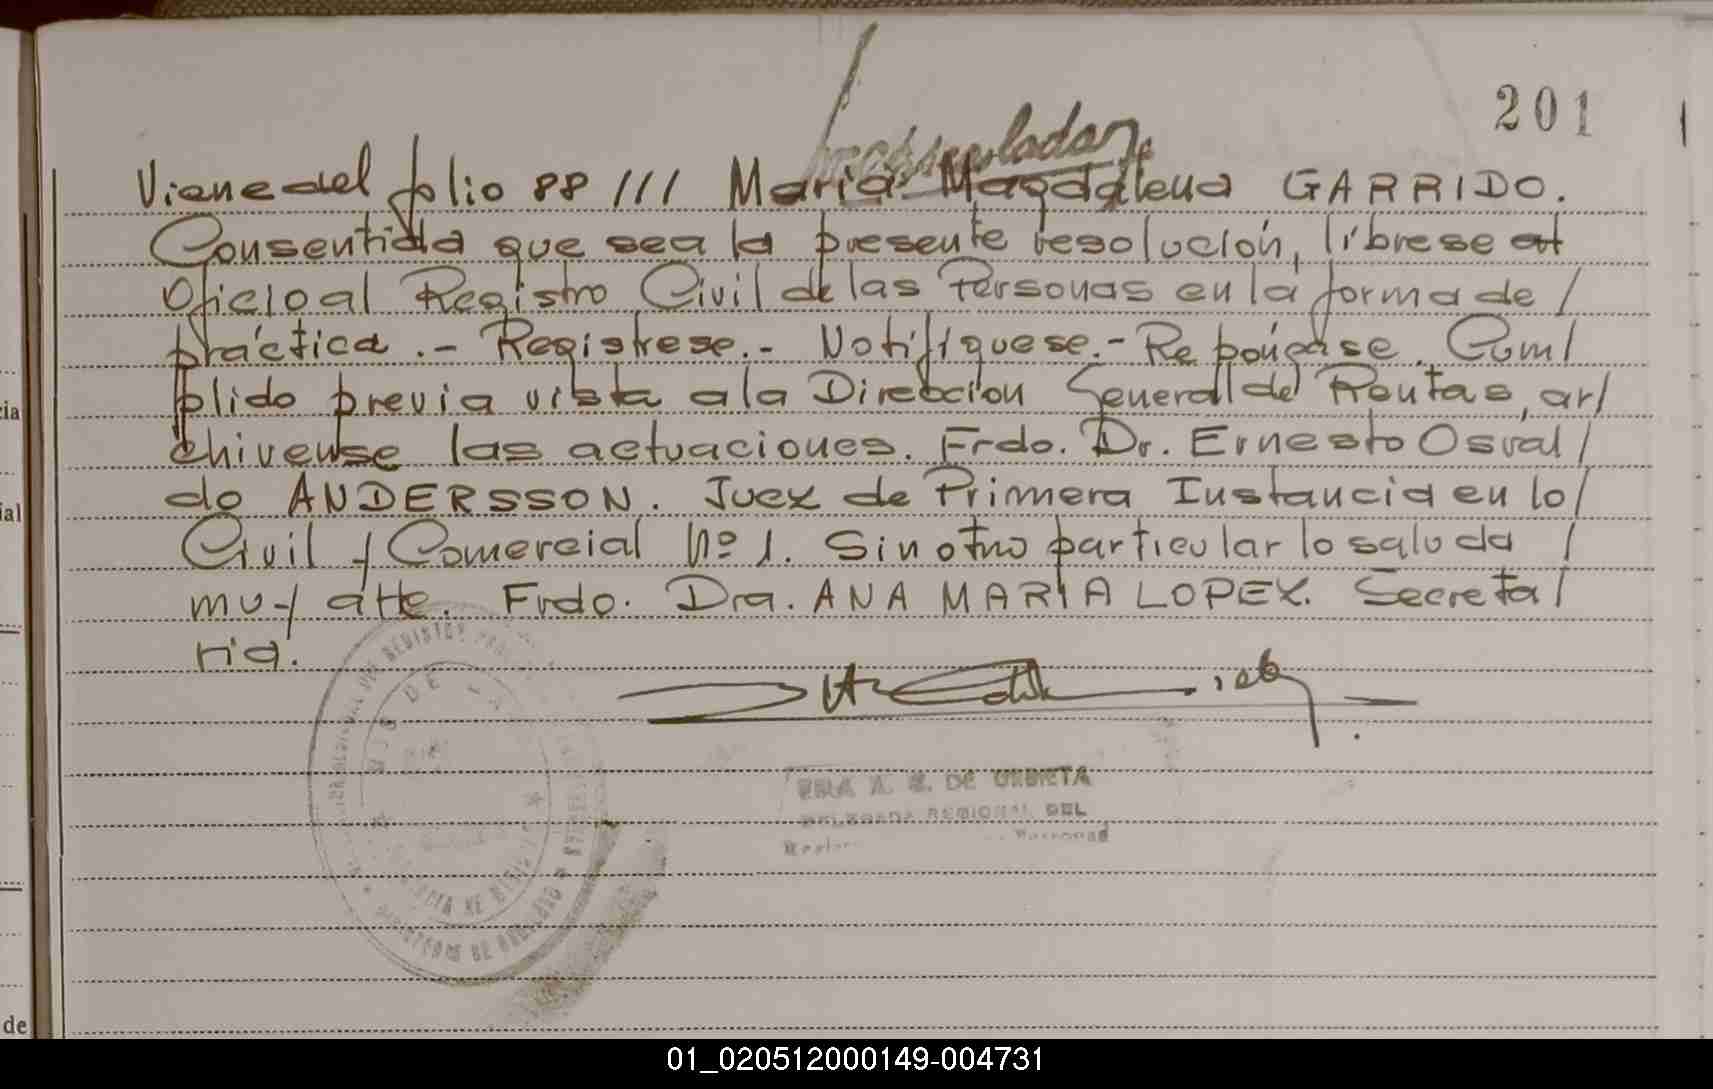 201
Viene del folio 88 /// Maria Magdalena GARRIDO.
Consentida que sea la presente resolución, líbrese
Oficio al Registro Civil de las Personas en la forma de /
práctica .- Registrese.- Notifíquese.- Repóngase. Cum/
plido previa vista a la Direbcion General de Rentas, ar/
chivense las actuaciones. Frdo. Dr. Ernesto Osval/
do ANDERSSON. Juez de Primera Instancia en lo/
Civil y Comercial Nº 1. Sin otro particular lo saluda /
muy atte. Frdo. Dra. ANA MARIA LOPEZ. Secreta/
ria.
DE URBIETA
DELEGADA REGIONAL DEL
cia
ial
de
01_020512000149-004731